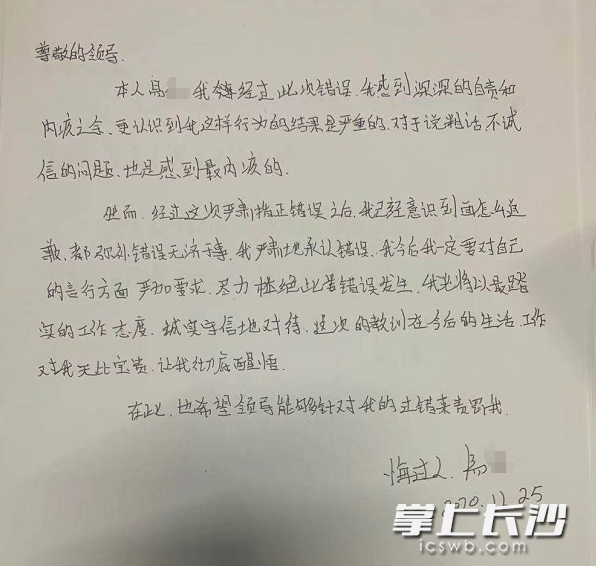 尊敬的领导.
本人马 我 经过此次错误.我感到深深的自责和
内疚之余、更认识到我这样行为的结果是严重的.对于说粗话不诚
信的问题.也是感到最内疚的.
然而.经过这次严肃指正错误之后.我已经意识到 怎么道
歉.都弥补错误无济于事.我严肃地承认错误.我今后我一定要对自己
的言行方面 严加要求.尽力杜绝此类错误发生.我 将以最踏
实的工作态度.诚实守信地对待.这次的教训在今后的生活.工作
对我无比宝贵.让我彻底醒悟.
在此.也希望领导能够针对我的过错来责罚我.
悔过人.马
2020.11.25
掌上长沙
icswb.com